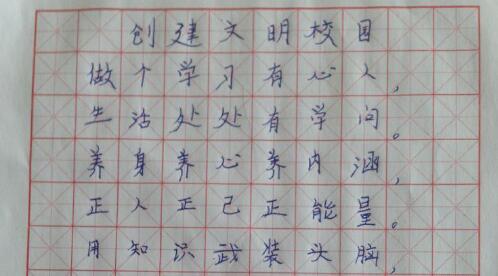 创建文明校园
做个学习有心人，
生活处处有学问。
养身养心养内涵，
正人正己正能量。
用知识武装头脑，